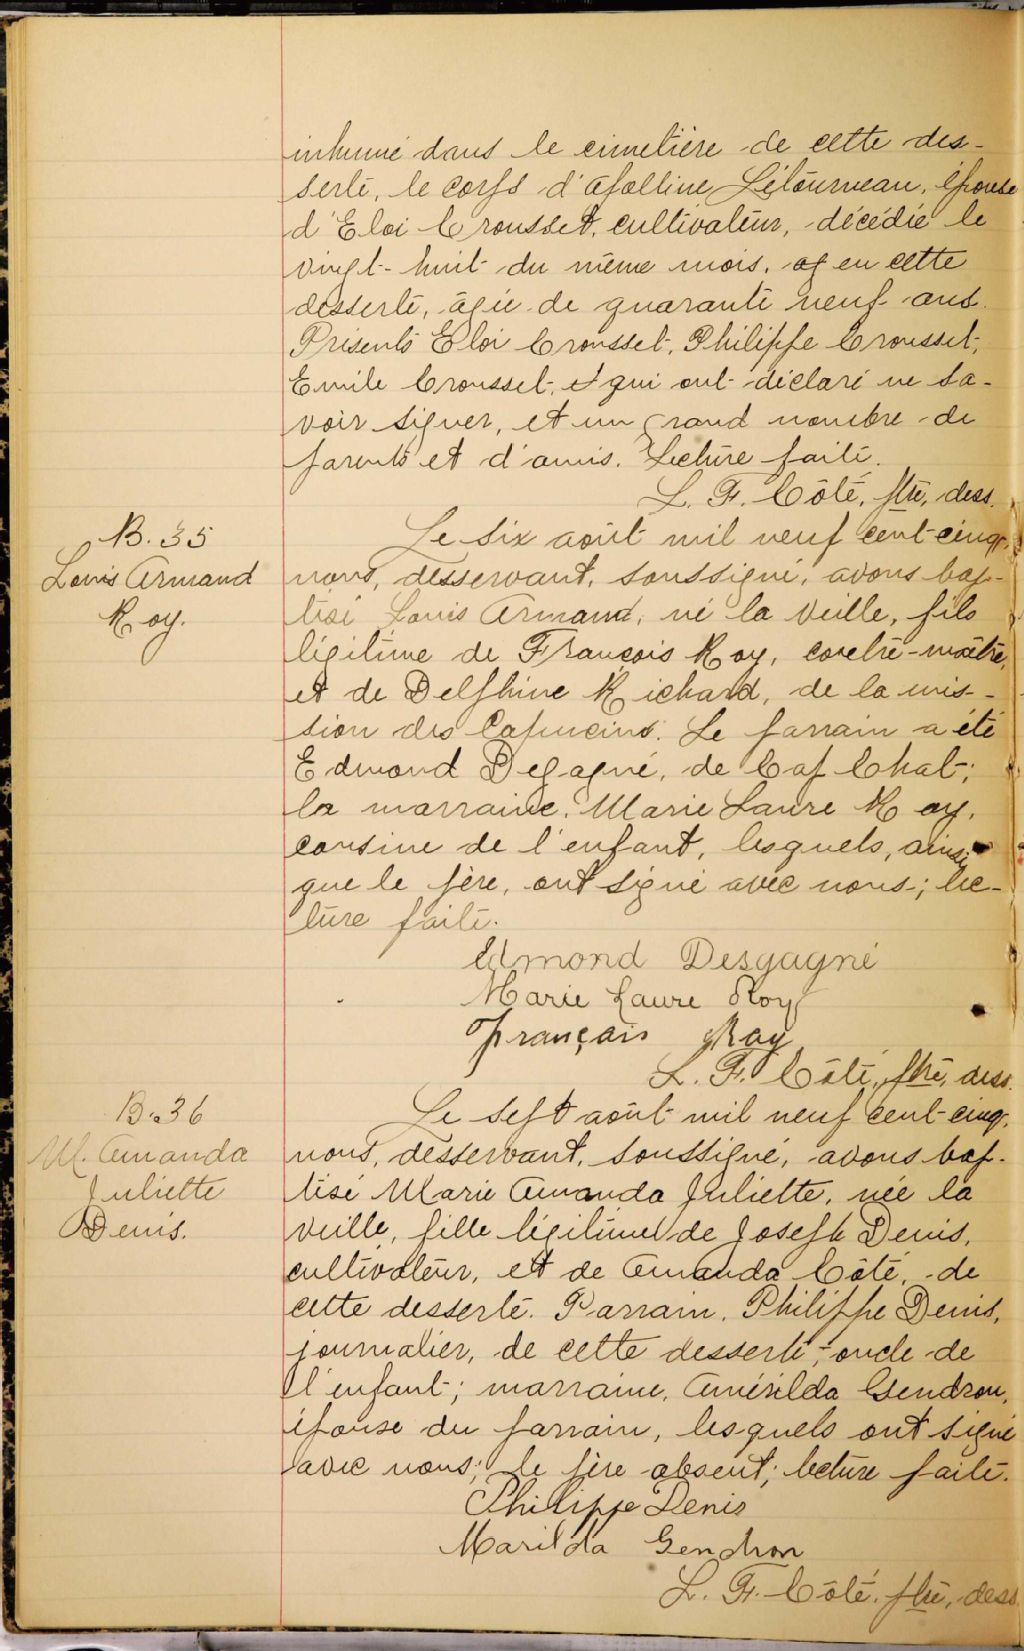 inhumé dans le cimetière de cette des-
serte, le corps d'Apolline Létourneau, épouse
d'Eloi Crousset, cultivateur, décédée le
vingt-huit du même mois, en cette
desserte, âgée de quarante neuf ans.
Présents Eloi Crousset, Philippe Crousset,
Emile Crousset, qui ont déclaré ne sa-
voir signer, et un grand nombre de
parents et d'amis. Lecture faite.
L. F. Côté, ptre, dess.
B. 35
Louis Armand
Roy.
Le six août mil neuf cent-cinq,
nous, desservant, soussigné, avons bap-
tisé Louis Armand, né la veille, fils
légitime de François Roy, contre-maître,
et de Delphine Richard, de la mis-
sion des Capucins. Le parrain a été
Edmond Degagné, de Cap Chat;
la marraine, Marie Laure Roy,
cousine de l'enfant, lesquels, ainsi
que le père, ont signé avec nous; lec-
ture faite.
Edmond Desgagné
Marie Laure Roy
François Roy
L. F. Côté, ptre, dess.
B. 36
M. Amanda
Juliette
Denis.
Le sept août mil neuf cent-cinq,
nous, desservant, soussigné, avons bap-
tisé Marie Amanda Juliette, née la
veille, fille légitime de Joseph Denis,
cultivateur, et de Amanda Côté, de
cette desserte. Parrain, Philippe Denis,
journalier, de cette desserte, oncle de
l'enfant; marraine, Amérilda Gendron,
épouse du parrain, lesquels ont signé
avec nous; le père absent; lecture faite.
Philippe Denis
Marilda Gendron
L. F. Côté, ptre, dess.